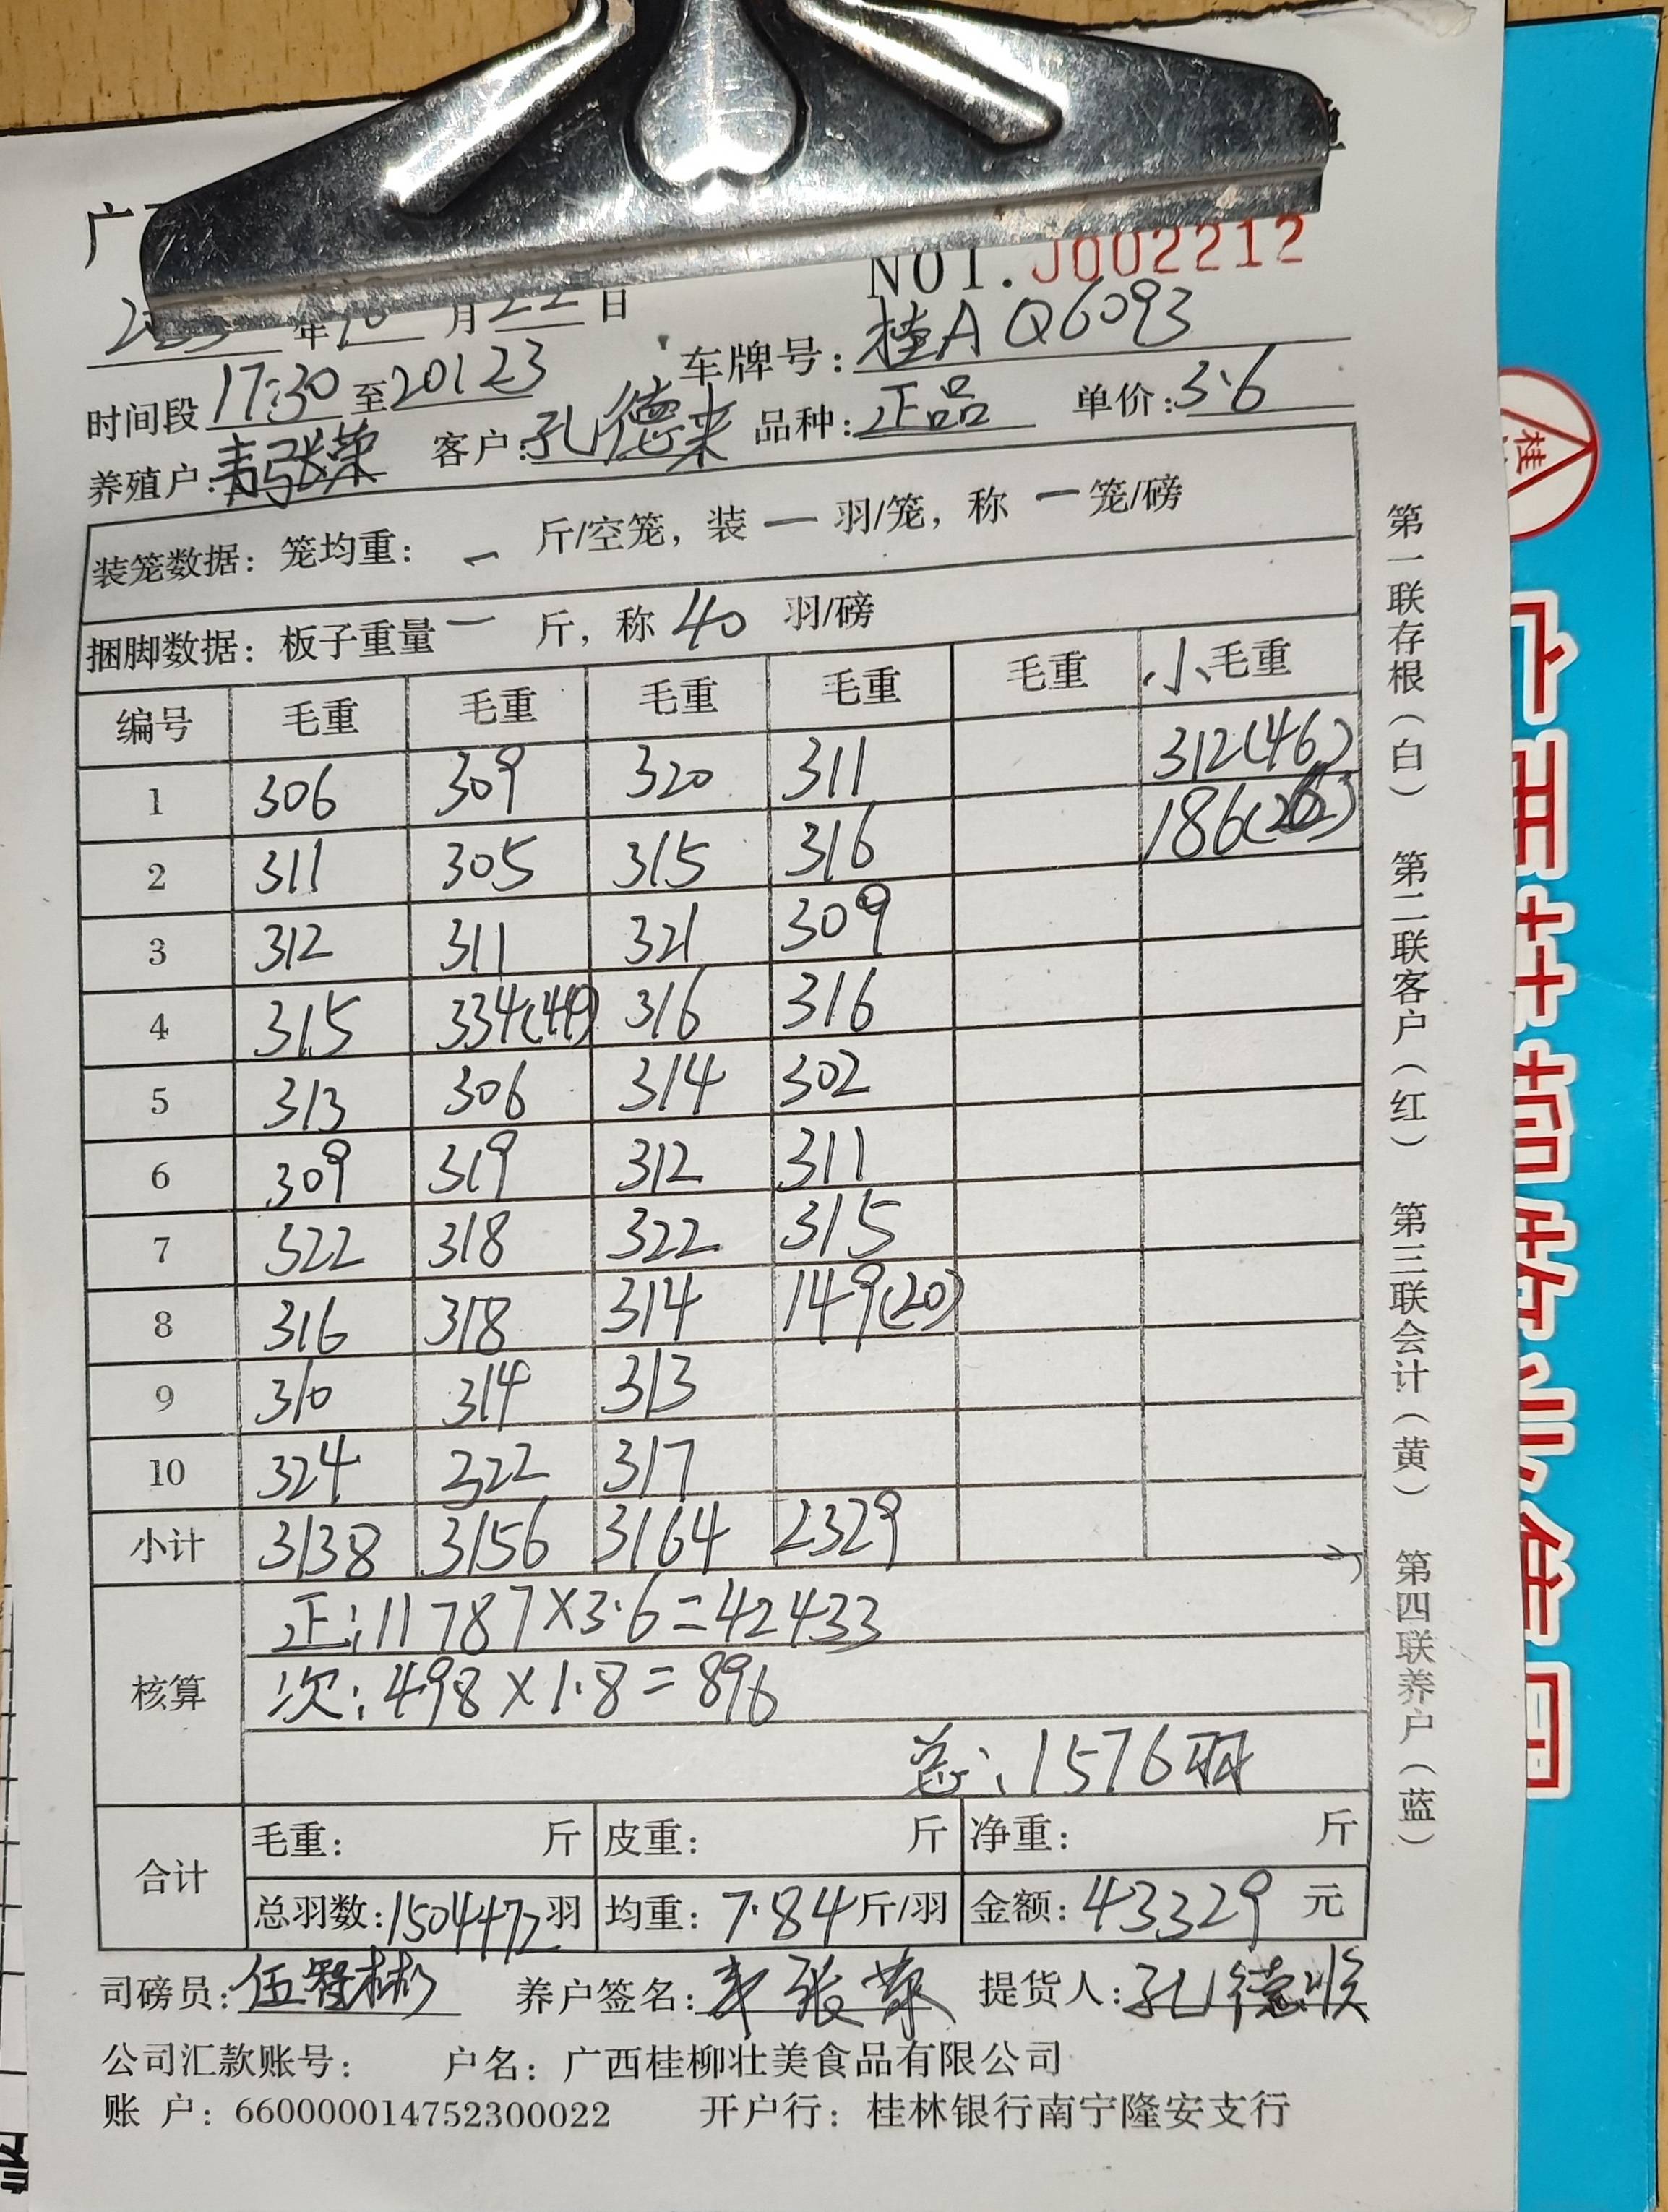 NO1.J002212
年10月22日
车牌号:桂AQ6093
时间段17:30至20:23
养殖户: 客户:孔德来 品种:正品 单价:3.6
装笼数据:笼均重: 一 斤/空笼,装 一 羽/笼,称 一 笼/磅
捆脚数据:板子重量 一 斤,称 40 羽/磅
编号 毛重 毛重 毛重 毛重 毛重 小毛重
1 306 309 320 311 312(46)
2 311 305 315 316 186
3 312 311 321 309
4 315 334 316 316
5 313 306 314 302
6 309 319 312 311
7 322 318 322 315
8 316 318 314 149(20)
9 310 314 313
10 324 322 317
小计 3138 3156 3164 2329
核算
正:11787×3.6=42433
次:498×1.8=896
总:1576羽
合计
毛重: 斤 皮重: 斤 净重: 斤
总羽数:1504+72羽 均重:7.84斤/羽 金额:43329 元
司磅员:伍智彬 养户签名: 提货人:孔德
公司汇款账号: 户名:广西桂柳壮美食品有限公司
账 户:660000014752300022 开户行:桂林银行南宁隆安支行
第一联存根(白) 第二联客户(红) 第三联会计(黄) 第四联养户(蓝)
桂